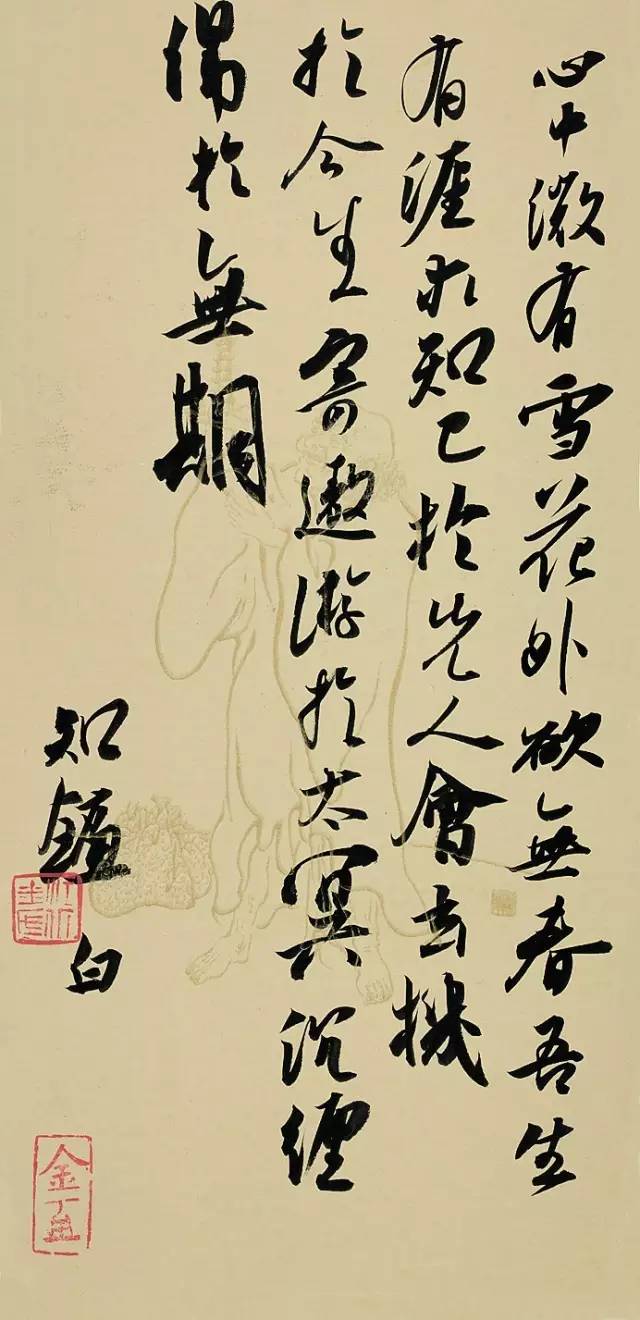 心中微有雪花外欲無春吾生
有涯求知己於先人會玄機
於今生寄遨游於太冥沉纏
綿於無期
知 白